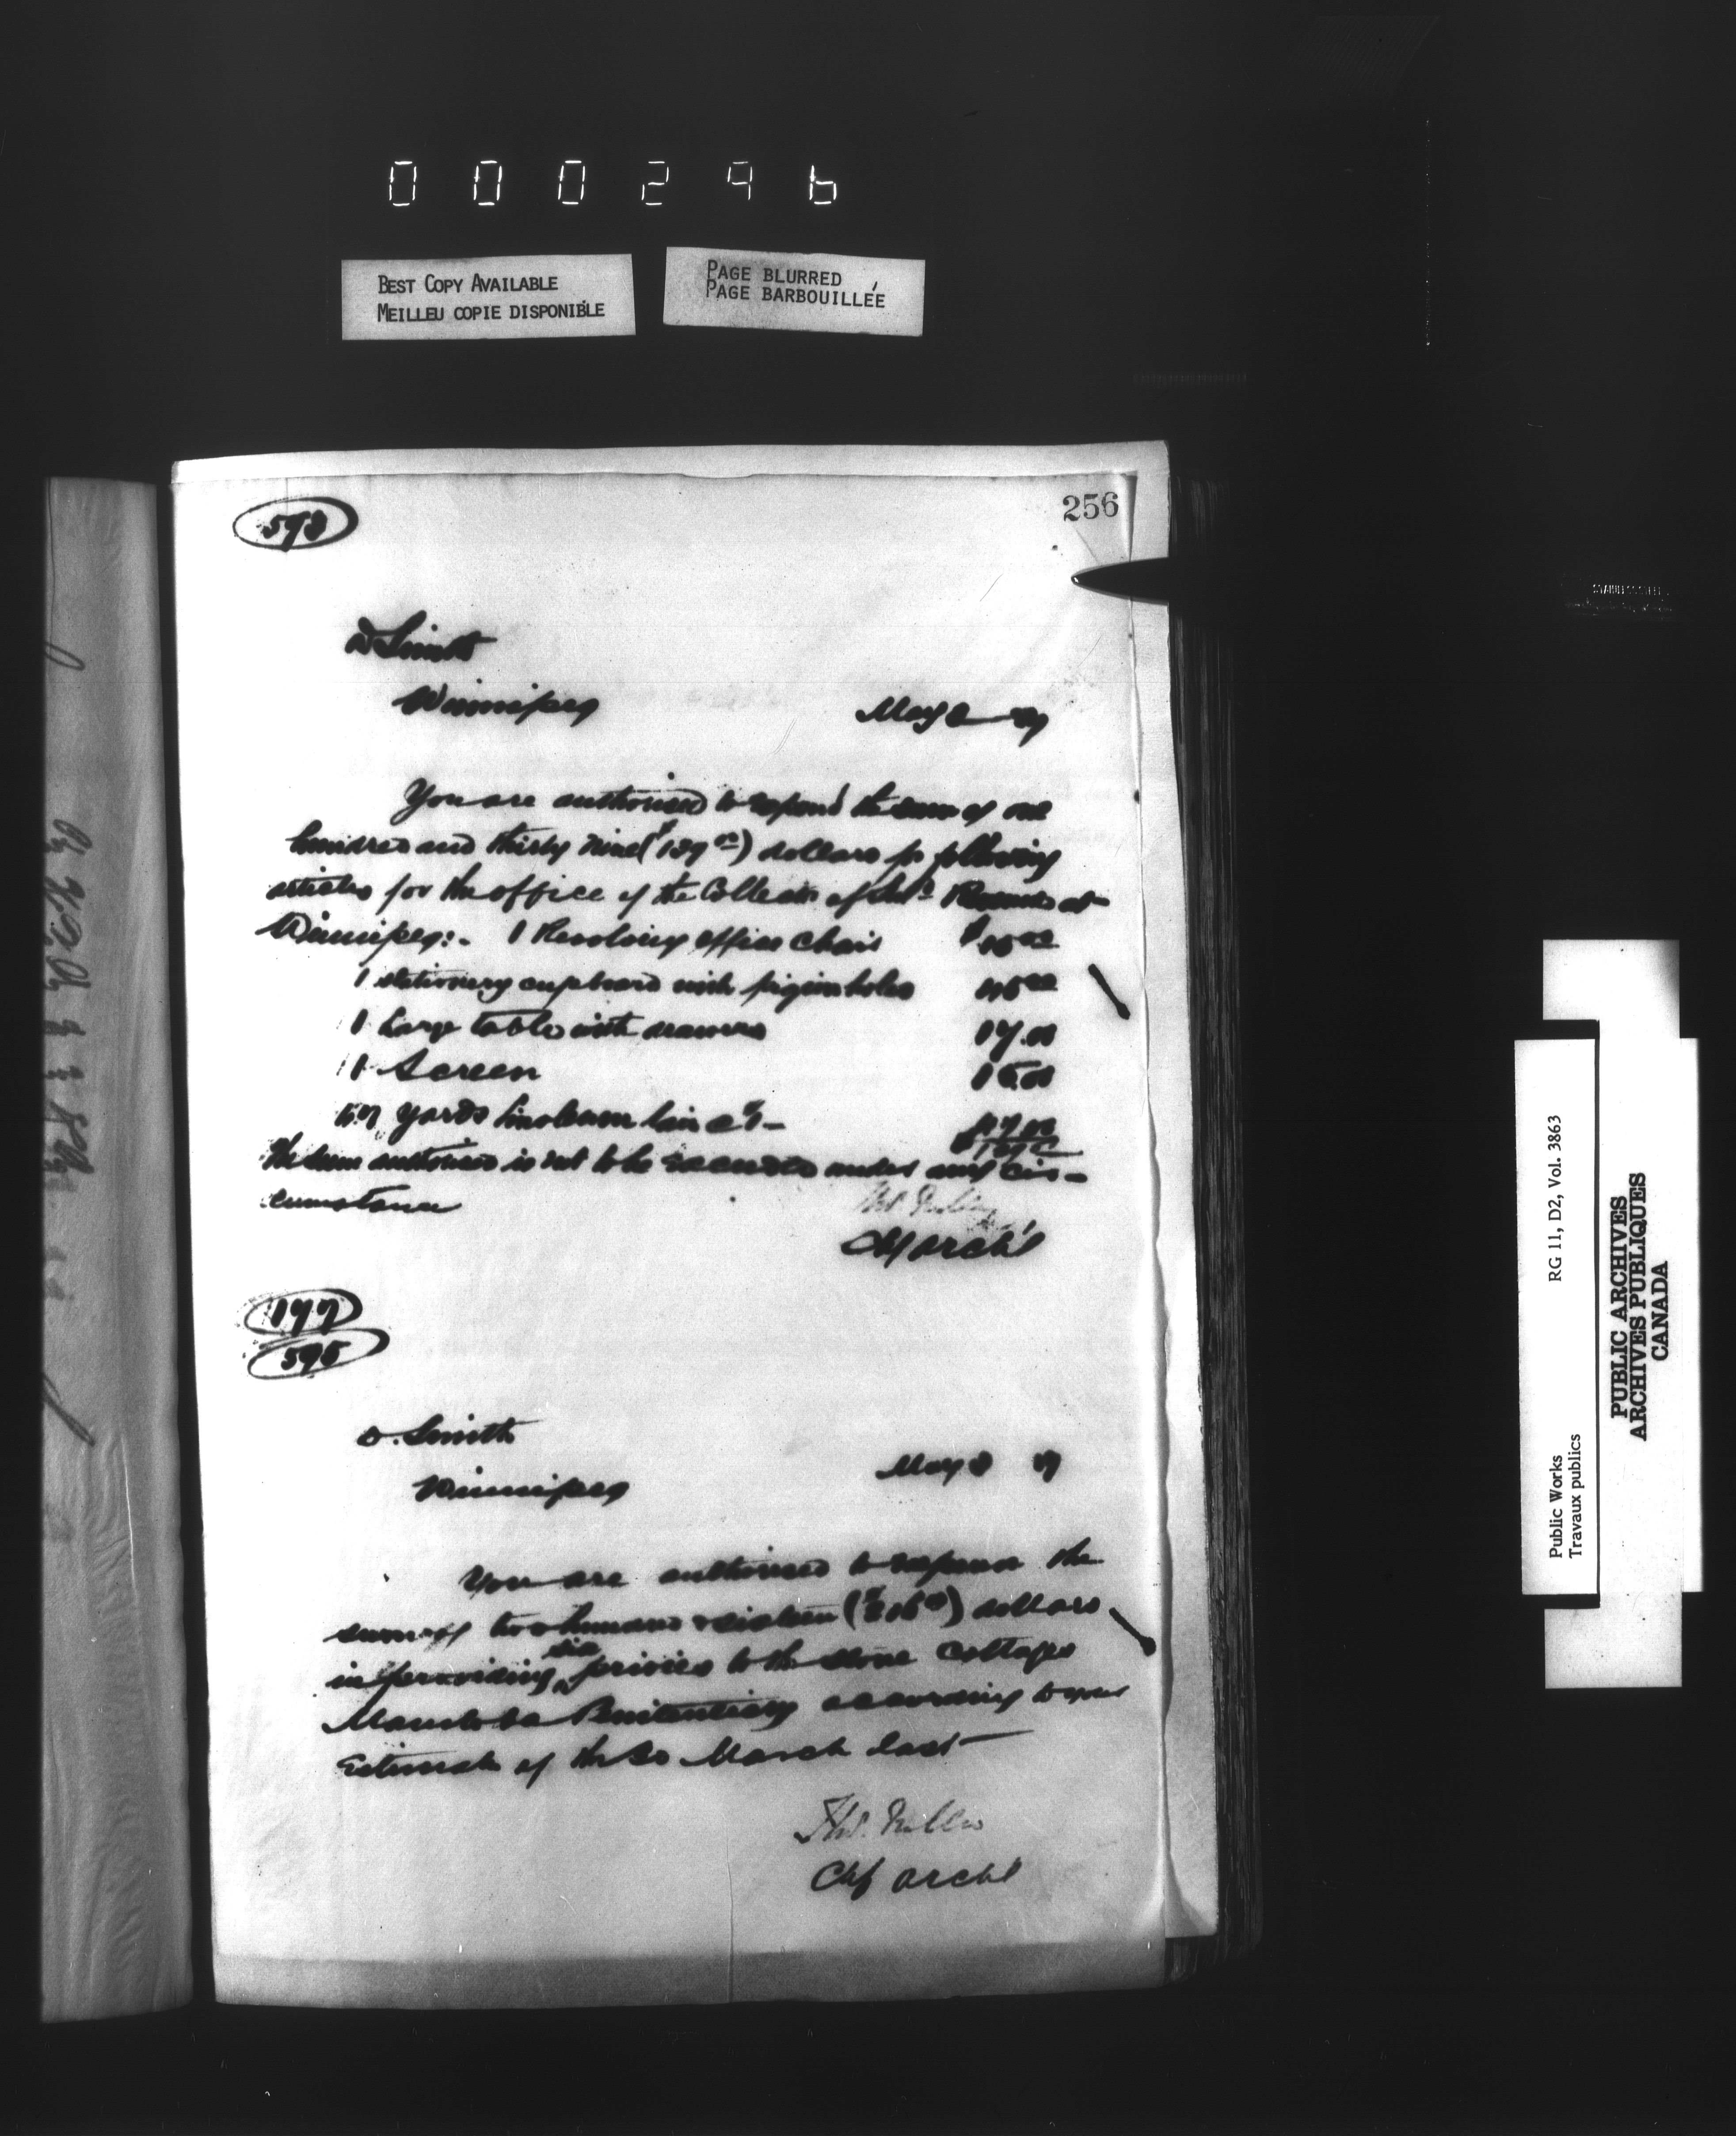 000296
BEST COPY AVAILABLE
MEILLEU COPIE DISPONIBLE
PAGE BLURRED
PAGE BARBOUILLÉE
256
593
D Smith
Winnipeg May 8 89
You are authorised to expend the sum of one
hundred and thirty nine ($139 00) dollars for following
articles for the office of the Collector of Revenue at
Winnipeg:- 1 Revolving office chair
1 stationery cupboard with pigeonholes 45 00
1 Large table with drawers 17.00
1 Screen 15.00
57 yards linoleum laid 47.00
$139
The sum authorised is not to be exceeded under any cir-
cumstance
Ch Archt
177
595
D. Smith
Winnipeg May 8 89
You are authorised to expend the
sum of two hundred & sixteen ($216 00) dollars
in providing six privies to the stone cottages
Manitoba Penitentiary according to your
Estimate of the 30 March last
Thos. Fuller
Chf Archt
Public Works
Travaux publics
RG 11, D2, Vol. 3863
PUBLIC ARCHIVES
ARCHIVES PUBLIQUES
CANADA